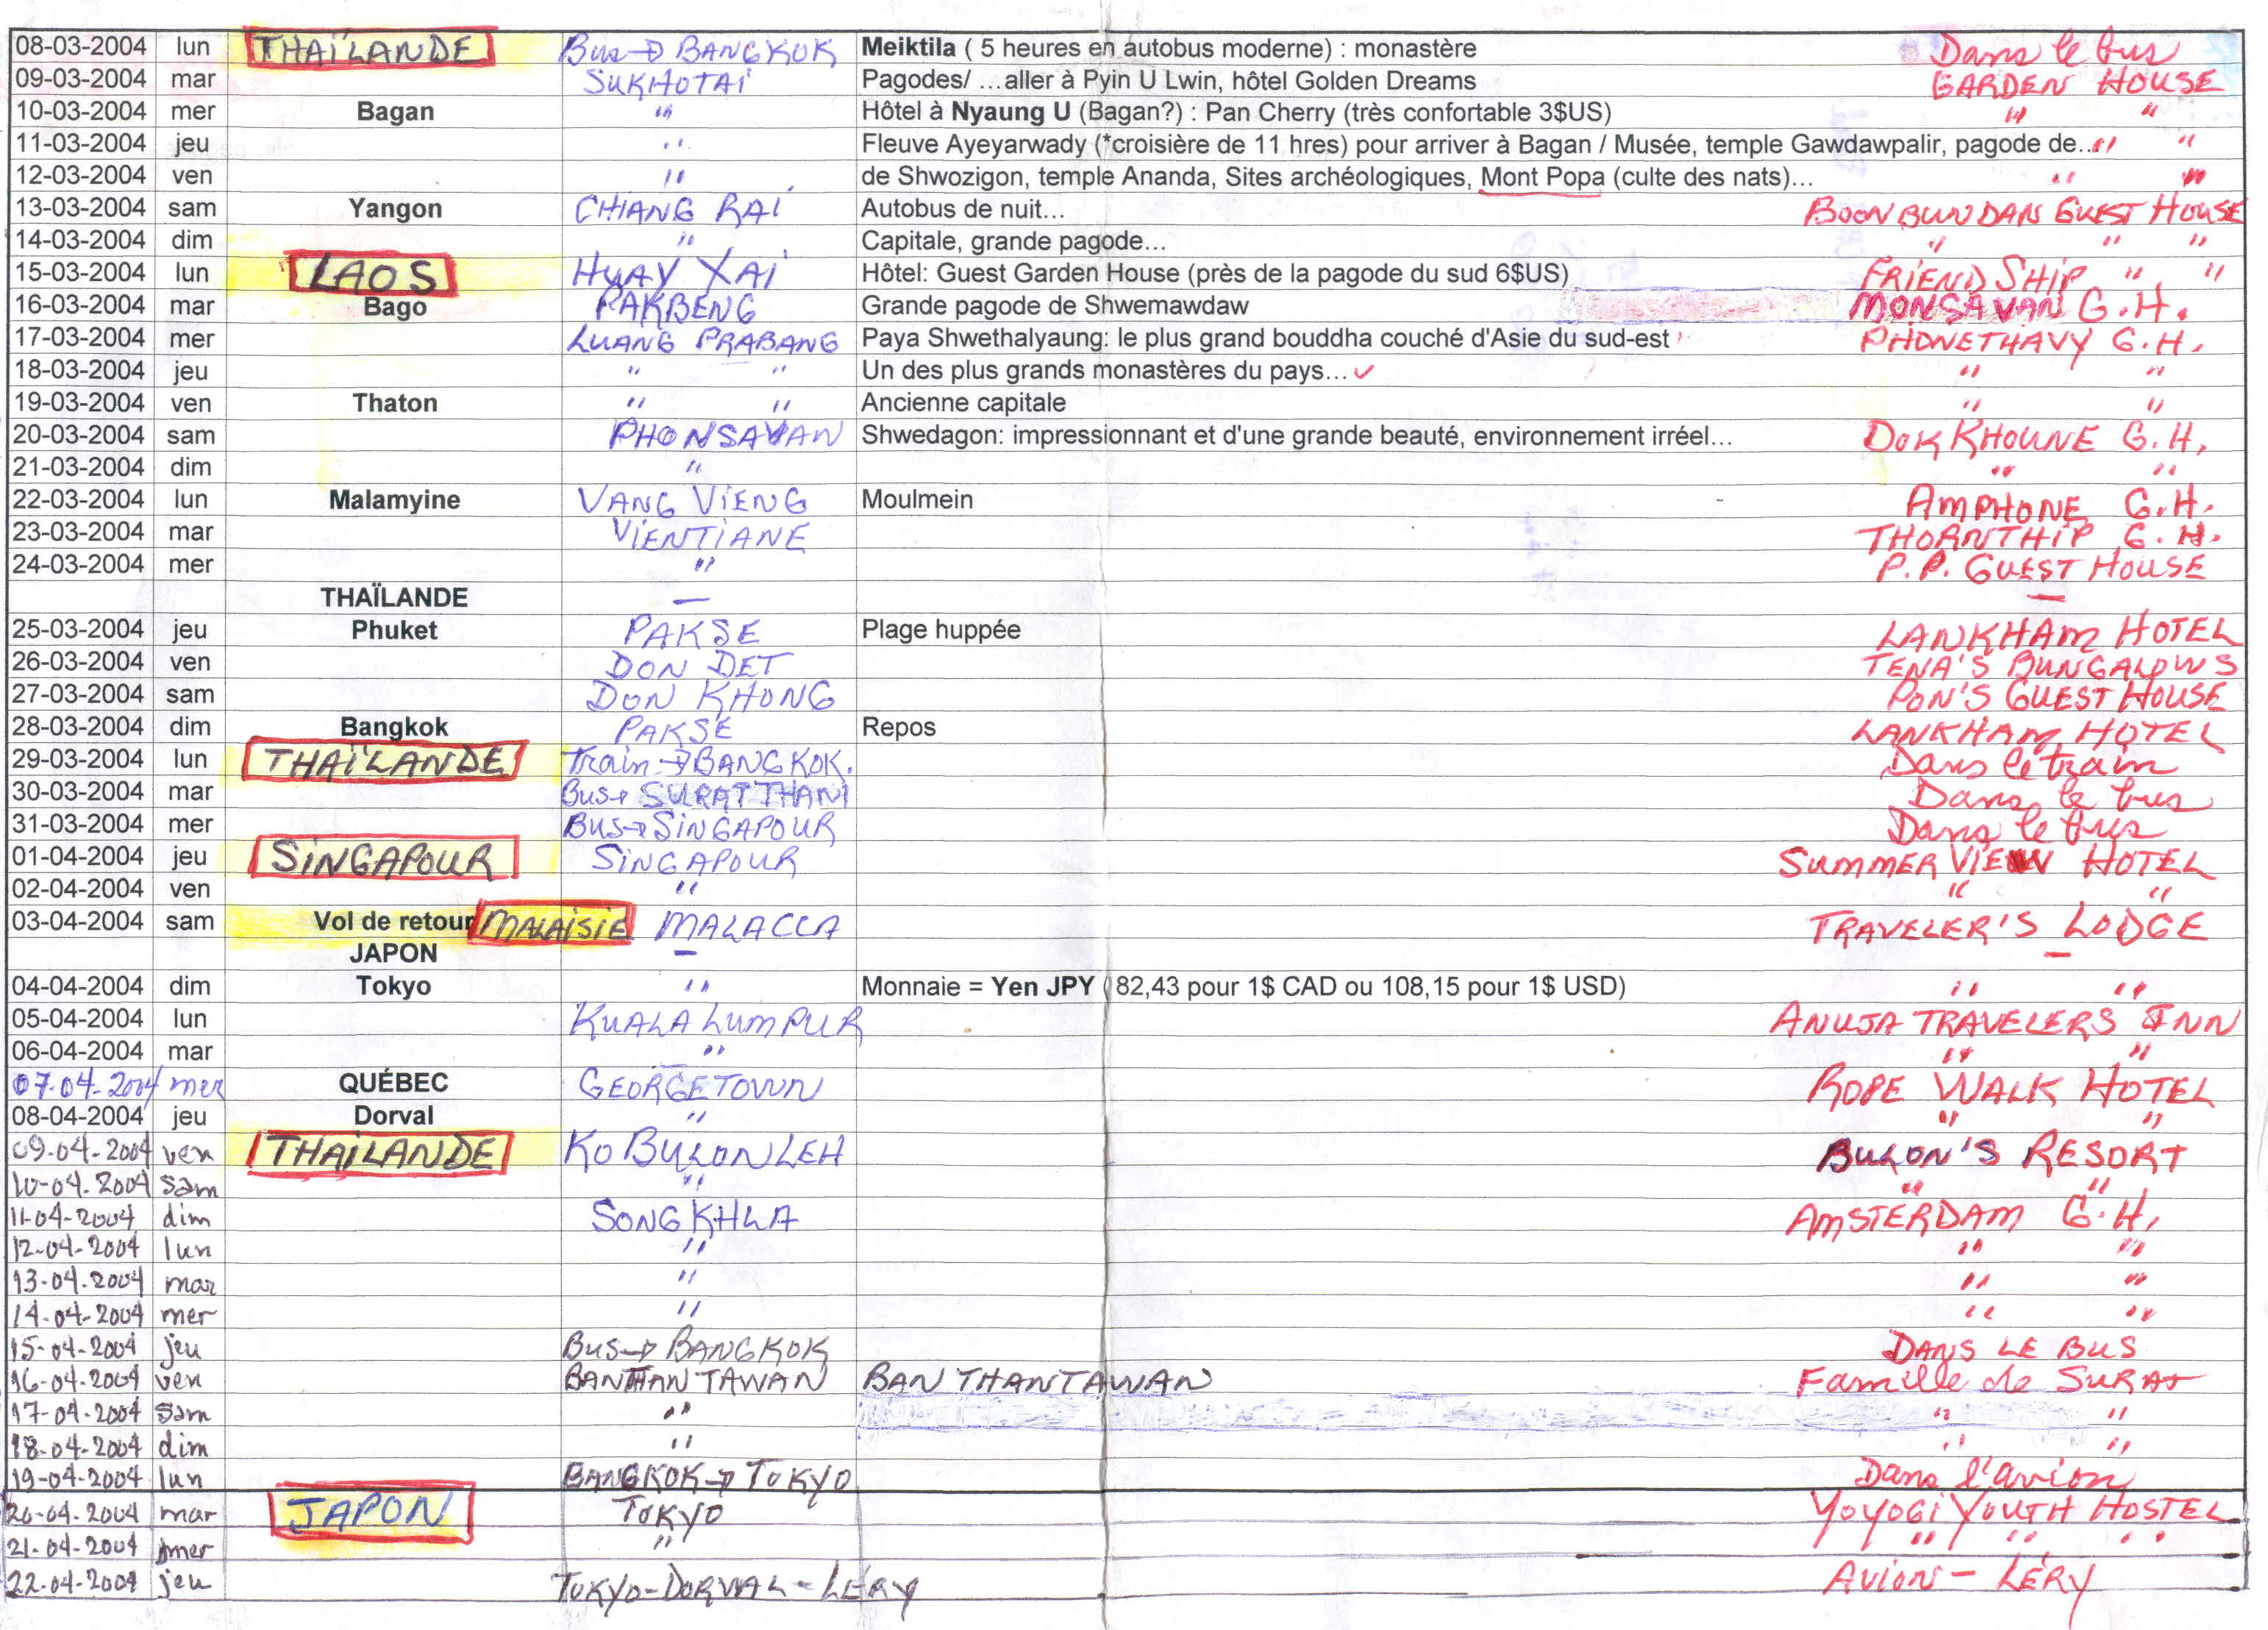 08-03-2004 lun THAÏLANDE Bus → BANGKOK Meiktila ( 5 heures en autobus moderne) : monastère Dans le bus
09-03-2004 mar SUKHOTAI Pagodes/ …aller à Pyin U Lwin, hôtel Golden Dreams GARDEN HOUSE
10-03-2004 mer Bagan " Hôtel à Nyaung U (Bagan?) : Pan Cherry (très confortable 3$US) " "
11-03-2004 jeu " Fleuve Ayeyarwady (*croisière de 11 hres) pour arriver à Bagan / Musée, temple Gawdawpalir, pagode de… " "
12-03-2004 ven " de Shwozigon, temple Ananda, Sites archéologiques, Mont Popa (culte des nats)… " "
13-03-2004 sam Yangon CHIANG RAI Autobus de nuit… BOONBUNDAN GUEST HOUSE
14-03-2004 dim " Capitale, grande pagode… " " "
15-03-2004 lun LAOS HUAY XAI Hôtel: Guest Garden House (près de la pagode du sud 6$US) FRIENDSHIP " "
16-03-2004 mar Bago PAKBENG Grande pagode de Shwemawdaw MONSAVAN G.H.
17-03-2004 mer LUANG PRABANG Paya Shwethalyaung: le plus grand bouddha couché d'Asie du sud-est PHONETHAVY G.H.
18-03-2004 jeu " " Un des plus grands monastères du pays… ✓ " "
19-03-2004 ven Thaton " " Ancienne capitale " "
20-03-2004 sam PHONSAVAN Shwedagon: impressionnant et d'une grande beauté, environnement irréel… DOKKHOUNE G.H.
21-03-2004 dim " " "
22-03-2004 lun Malamyine VANG VIENG Moulmein AMPHONE G.H.
23-03-2004 mar VIENTIANE THORNTHIP G.H.
24-03-2004 mer " P.P. GUEST HOUSE
THAÏLANDE — —
25-03-2004 jeu Phuket PAKSE Plage huppée LANKHAM HOTEL
26-03-2004 ven DON DET TENA'S BUNGALOWS
27-03-2004 sam DON KHONG PON'S GUEST HOUSE
28-03-2004 dim Bangkok PAKSE Repos LANKHAM HOTEL
29-03-2004 lun THAÏLANDE Train → BANGKOK. Dans le train
30-03-2004 mar Bus → SURAT THANI Dans le bus
31-03-2004 mer BUS → SINGAPOUR Dans le bus
01-04-2004 jeu SINGAPOUR SINGAPOUR SUMMER VIEW HOTEL
02-04-2004 ven " " "
03-04-2004 sam Vol de retour MALAISIE MALACCA TRAVELER'S LODGE
JAPON — —
04-04-2004 dim Tokyo " Monnaie = Yen JPY ( 82,43 pour 1$ CAD ou 108,15 pour 1$ USD) " "
05-04-2004 lun KUALA LUMPUR ANUJA TRAVELERS INN
06-04-2004 mar " " "
07-04-2004 mer QUÉBEC GEORGETOWN ROPE WALK HOTEL
08-04-2004 jeu Dorval " " "
09-04-2004 ven THAILANDE KO BULON LEH BULON'S RESORT
10-04-2004 sam " " "
11-04-2004 dim SONGKHLA AMSTERDAM G.H.
12-04-2004 lun " " "
13-04-2004 mar " " "
14-04-2004 mer " " "
15-04-2004 jeu BUS → BANGKOK DANS LE BUS
16-04-2004 ven BANTHAN TAWAN BAN THANTAWAN Famille de SURAT
17-04-2004 sam " " "
18-04-2004 dim " " "
19-04-2004 lun BANGKOK → TOKYO Dans l'avion
20-04-2004 mar JAPON TOKYO YOYOGI YOUTH HOSTEL
21-04-2004 mer " " " "
22-04-2004 jeu TOKYO-DORVAL-LÉRY AVION - LÉRY